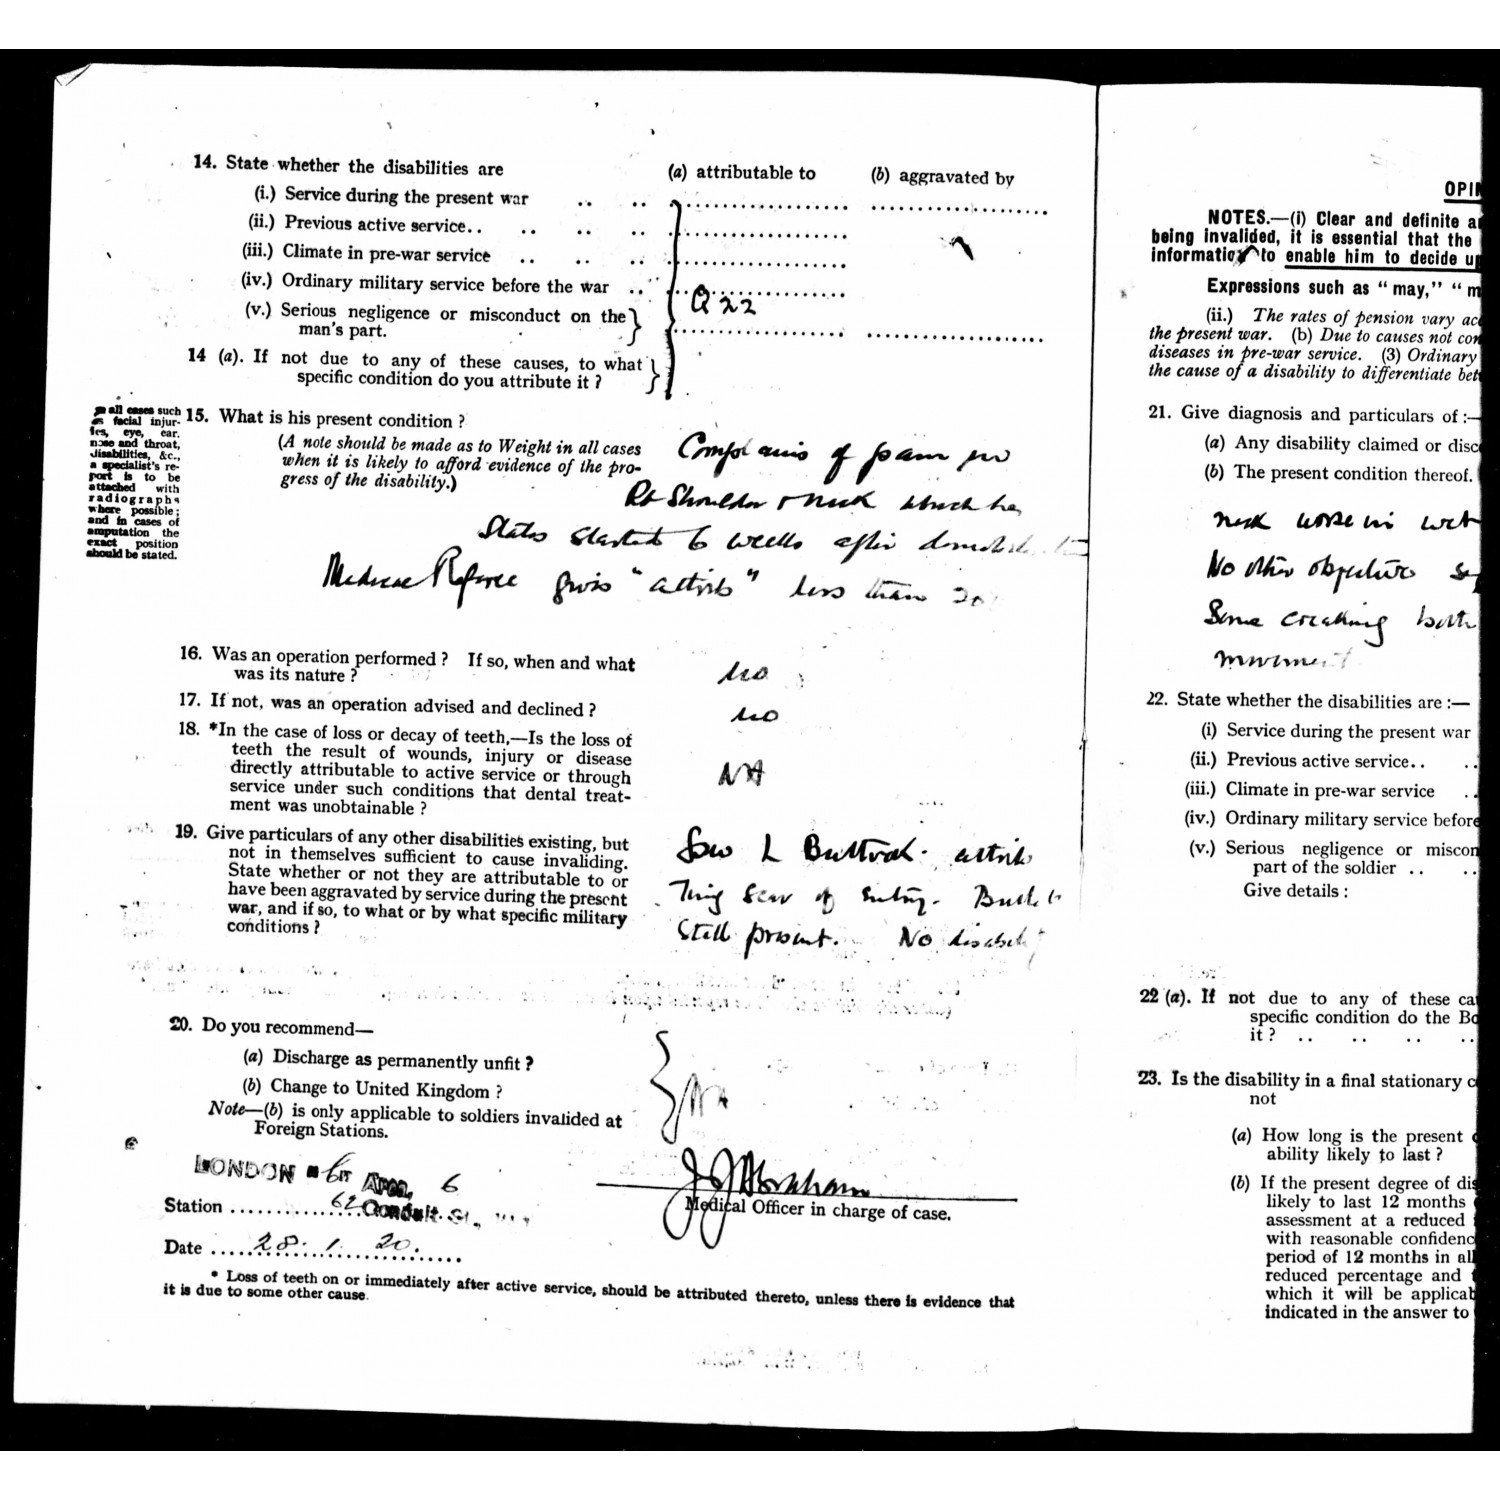 14. State whether the disabilities are (a) attributable to (b) aggravated by
(i.) Service during the present war
(ii.) Previous active service..
(iii.) Climate in pre-war service
(iv.) Ordinary military service before the war
Q 22
(v.) Serious negligence or misconduct on the
man's part.
14 (a). If not due to any of these causes, to what
specific condition do you attribute it ?
all cases such
as facial injur-
ies, eye, ear,
nose and throat,
disabilities, &c.,
a specialist's re-
port is to be
attached with
radiographs
where possible;
and in cases of
amputation the
exact position
should be stated.
15. What is his present condition ?
(A note should be made as to Weight in all cases
when it is likely to afford evidence of the pro-
gress of the disability.)
Complains of pain in
Rt Shoulder & neck which he
states started 6 weeks after
Medical Referee gives "attrib" less than 20
16. Was an operation performed ? If so, when and what
was its nature ?
no
17. If not, was an operation advised and declined ?
no
18. *In the case of loss or decay of teeth,—Is the loss of
teeth the result of wounds, injury or disease
directly attributable to active service or through
service under such conditions that dental treat-
ment was unobtainable ?
NA
19. Give particulars of any other disabilities existing, but
not in themselves sufficient to cause invaliding.
State whether or not they are attributable to or
have been aggravated by service during the present
war, and if so, to what or by what specific military
conditions ?
L Buttock. attrib
Tiny scar of entry. Bullet
still present. No disabil
20. Do you recommend—
(a) Discharge as permanently unfit ?
(b) Change to United Kingdom ?
Note—(b) is only applicable to soldiers invalided at
Foreign Stations.
NA
LONDON Area, 6
Station 62 Conduit St.,
J J Abraham
Medical Officer in charge of case.
Date 28. 1. 20.
* Loss of teeth on or immediately after active service, should be attributed thereto, unless there is evidence that
it is due to some other cause.
OPIN
NOTES.—(i) Clear and definite a
being invalided, it is essential that the
information to enable him to decide up
Expressions such as "may," "m
(ii.) The rates of pension vary acc
the present war. (b) Due to causes not con
diseases in pre-war service. (3) Ordinary
the cause of a disability to differentiate bet
21. Give diagnosis and particulars of :—
(a) Any disability claimed or disc
(b) The present condition thereof.
neck worse in wet
No other objective
Some creaking both
movement
22. State whether the disabilities are :—
(i) Service during the present war
(ii.) Previous active service..
(iii.) Climate in pre-war service
(iv.) Ordinary military service before
(v.) Serious negligence or miscon
part of the soldier ..
Give details :
22 (a). If not due to any of these ca
specific condition do the Bo
it ?
23. Is the disability in a final stationary c
not
(a) How long is the present
ability likely to last ?
(b) If the present degree of dis
likely to last 12 months
assessment at a reduced
with reasonable confidenc
period of 12 months in all
reduced percentage and
which it will be applicab
indicated in the answer to